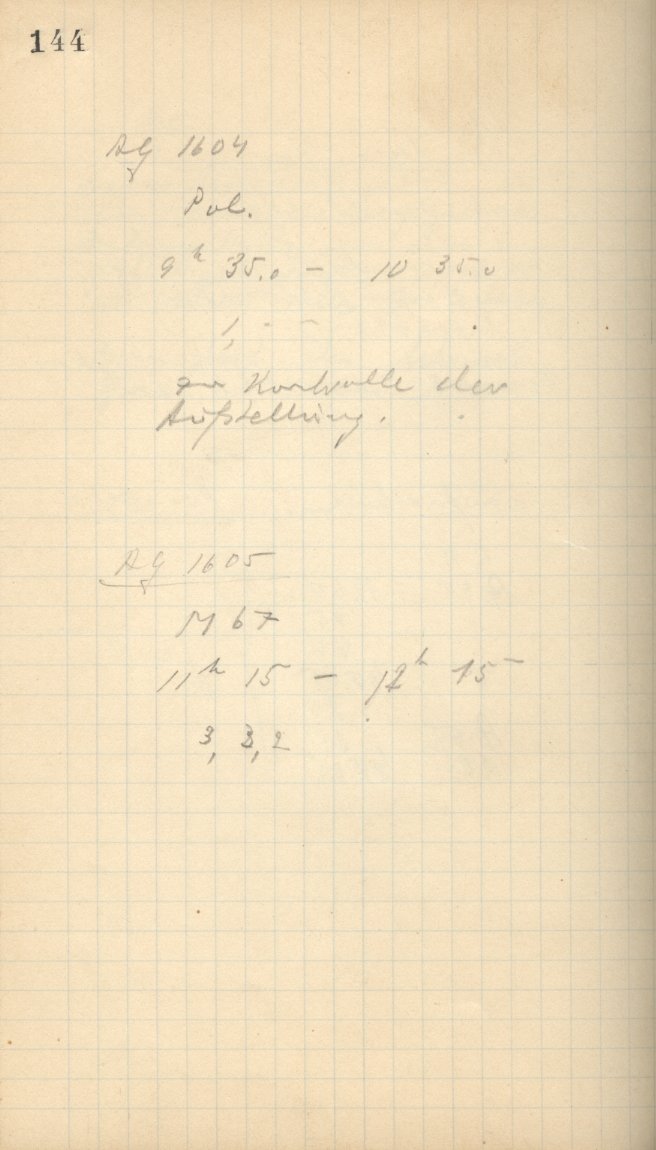 144
AG 1604
Pol.
9h 35.0 - 10 35.0
1, - -
zur Kontrolle der
Aufstellung.
AG 1605
M 67
11h 15 - 12h 15
3, 3, 2